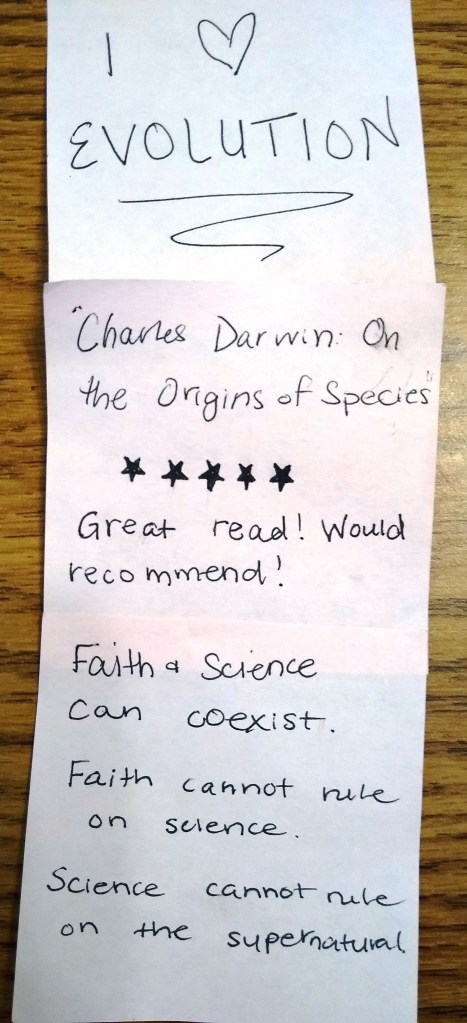 I ♡
EVOLUTION
"Charles Darwin: On
the Origins of Species"
★★★★★
Great read! Would
recommend!
Faith & Science
can coexist.
Faith cannot rule
on science.
Science cannot rule
on the supernatural.